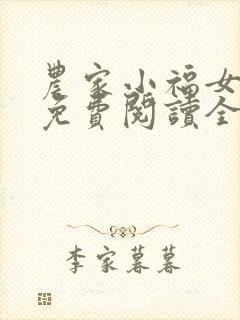 農家小福女
免費閱讀全
李家暮暮